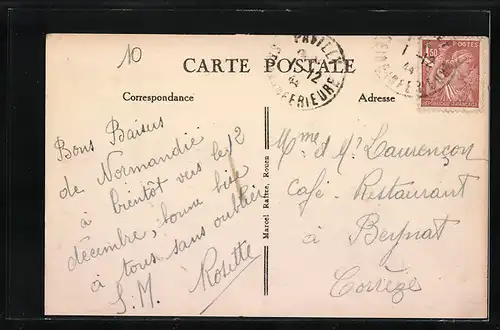 10
CARTE POSTALE
Correspondance
Adresse
Bons Baisers
de Normandie
à bientôt vers le 12
décembre, bonne bise
à tous sans oublier
S.M. Rosette
Marcel Rafter, Rouen
Mme et Mr Laurençon
Café-Restaurant
à Beynat
Corrèze
PAVILLY
INFERIEURE
12
44
1F50
POSTES
REPUBLIQUE FRANCAISE